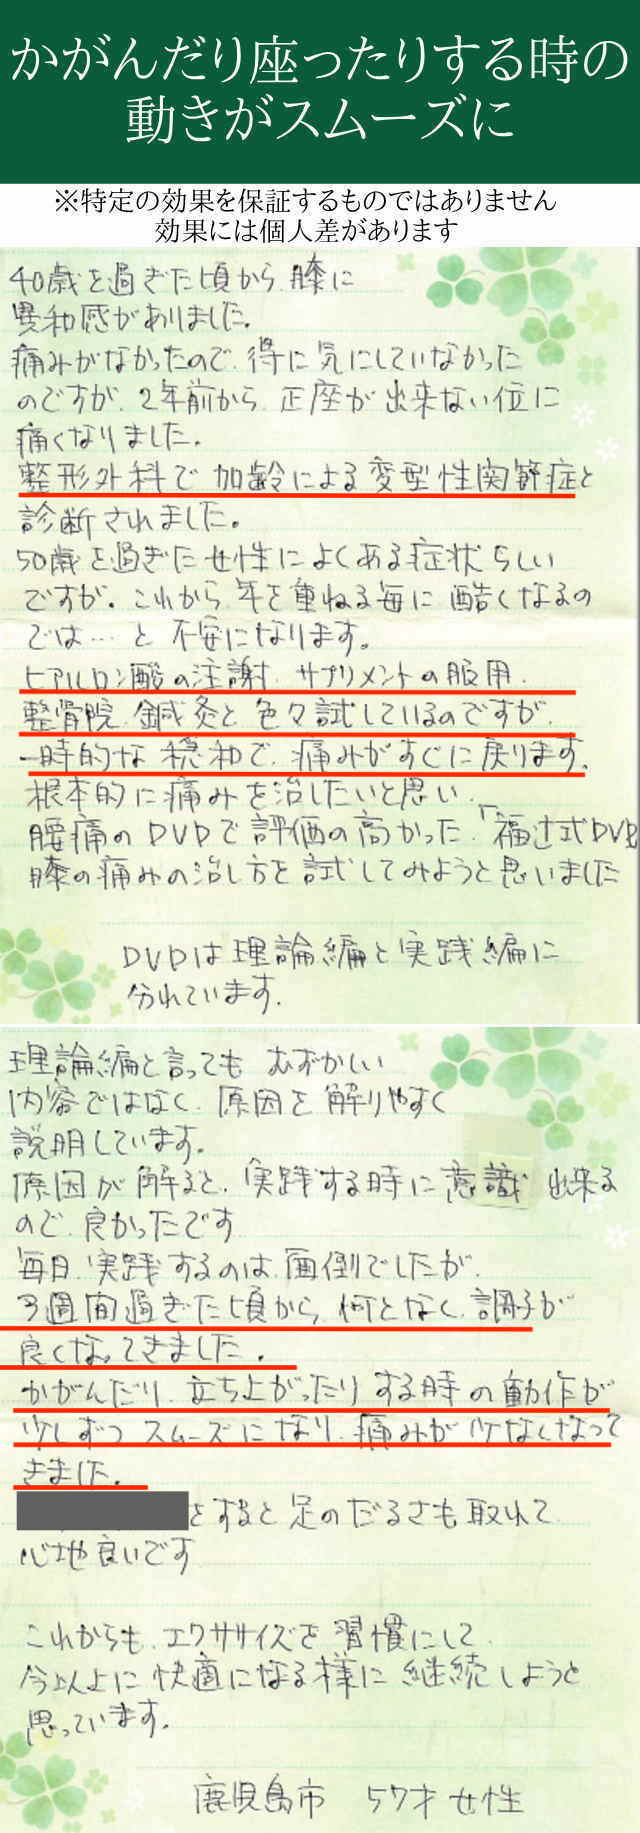 かがんだり座ったりする時の
動きがスムーズに
※特定の効果を保証するものではありません
効果には個人差があります
40歳を過ぎた頃から膝に
異和感がありました。
痛みがなかったので、得に気にしていなかった
のですが、2年前から、正座が出来ない位に
痛くなりました。
整形外科で加齢による変型性関節症と
診断されました。
50歳を過ぎた女性によくある症状らしい
ですが。これから年を重ねる毎に酷くなるの
では…と不安になります。
ヒアルロン酸の注謝、サプリメントの服用、
整骨院、鍼灸と色々試しているのですが、
一時的な穏和で、痛みがすぐに戻ります。
根本的に痛みを治したいと思い、
腰痛のDVDで評価の高かった、「福辻式DVD
膝の痛みの治し方を試してみようと思いました
DVDは理論編と実践編に
分れています。
理論編と言っても むずかしい
内容ではなく、原因を解りやすく
説明しています。
原因が解ると、実践する時に意識出来る
ので、良かったです
毎日、実践するのは、面倒でしたが、
3週間過ぎた頃から、何となく、調子が
良くなってきました。
かがんだり、立ち上がったりする時の動作が
少しずつスムーズになり、痛みが少なくなって
きました。
をすると足のだるさも取れて
心地良いです
これからも、エクササイズを習慣にして、
今以上に快適になる様に継続しようと
思っています。
鹿児島市 57才 女性